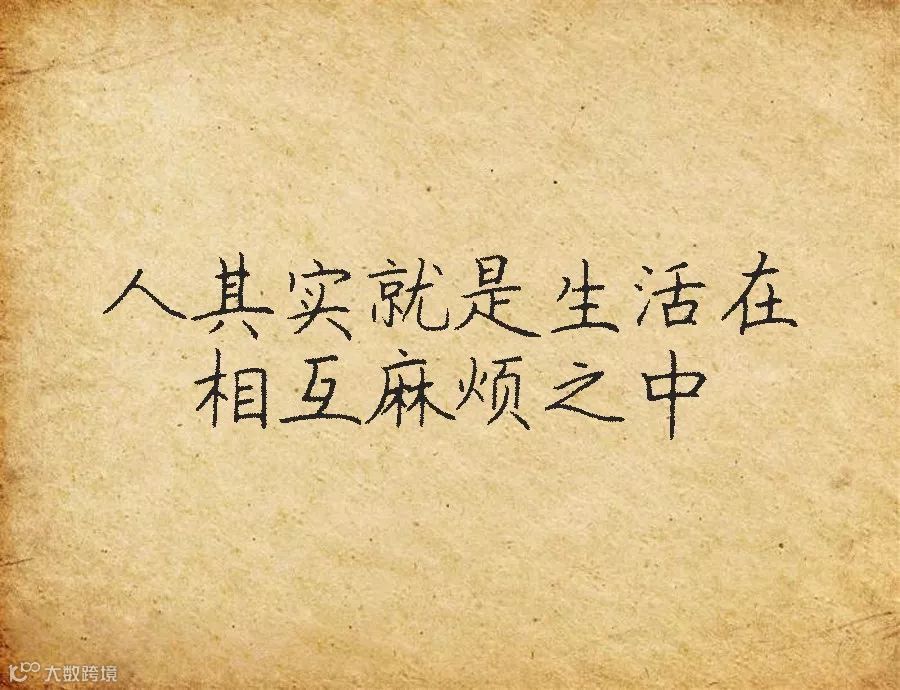 人其实就是生活在
相互麻烦之中
大数跨境